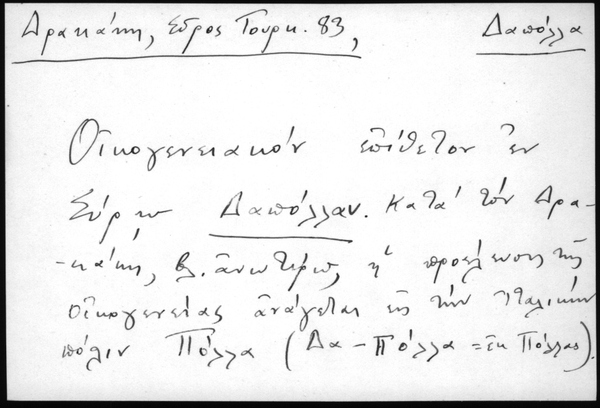 Δρακάκη, Σῦρος Τουρκ. 83, Δαπόλλα
Οἰκογενειακόν ἐπίθετον ἐν
Σύρῳ Δαπόλλαν. Κατά τόν Δρα-
-κάκη, βλ. ἀνωτέρω, ἡ προέλευσις τῆς
οἰκογενείας ἀνάγεται εἰς τήν Ἰταλικήν
πόλιν Πόλλα (Δα - Πόλλα = ἐκ Πόλλας).